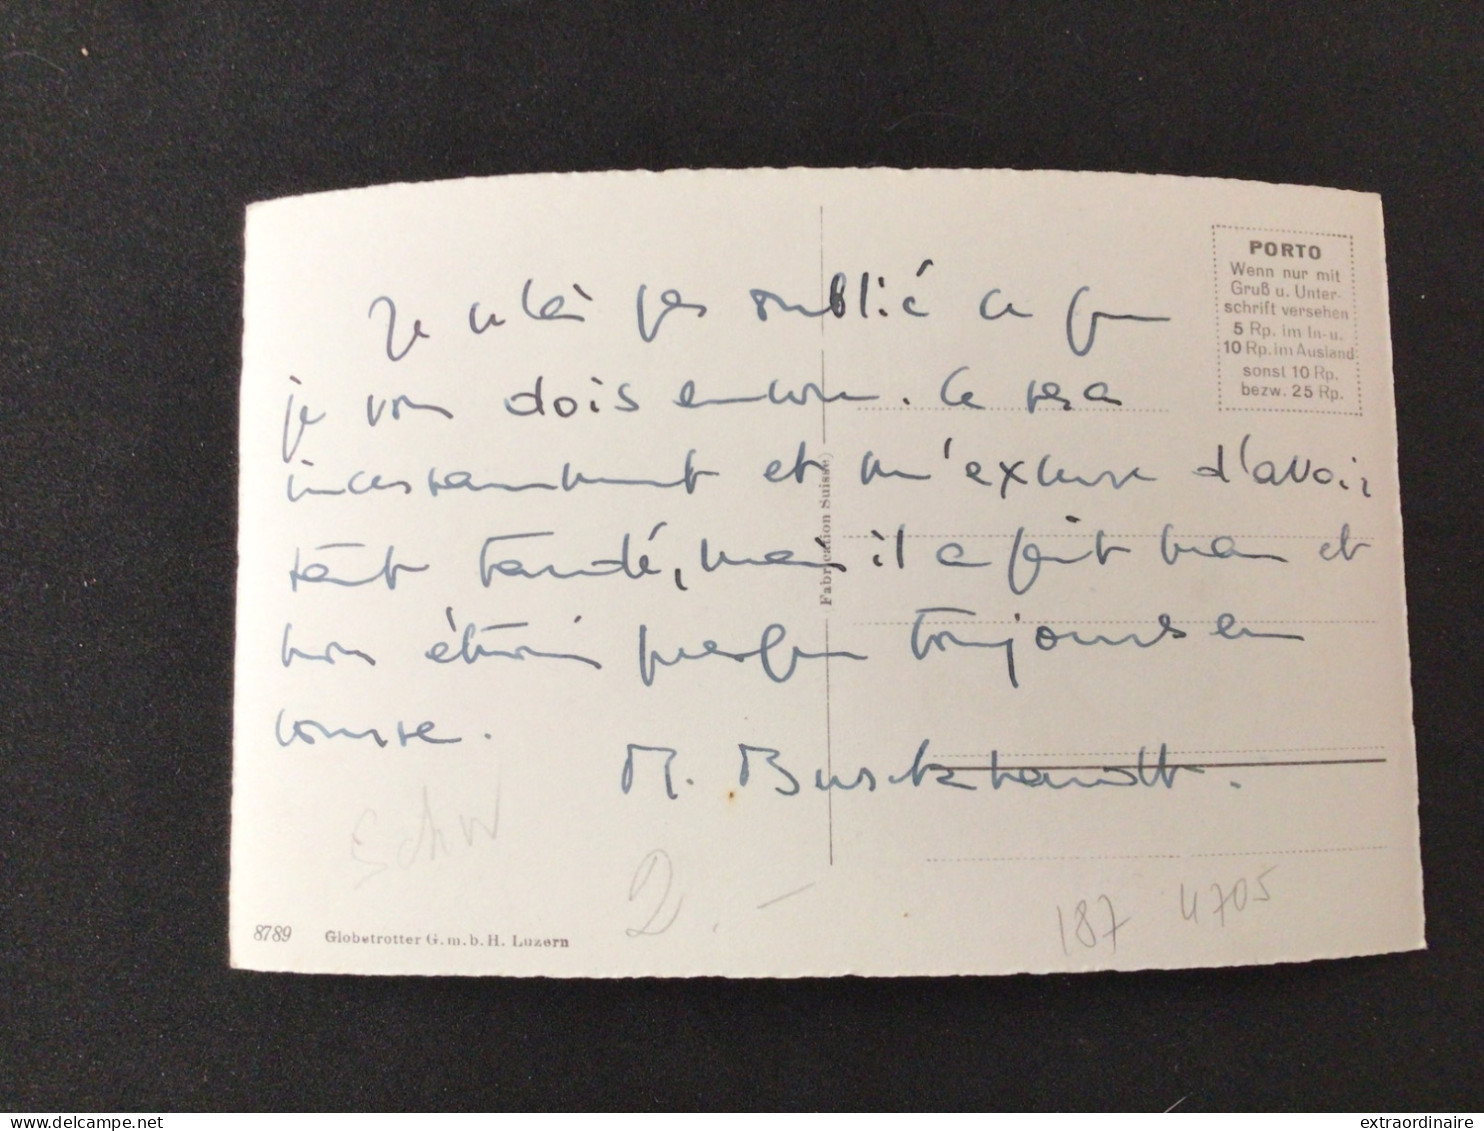 Je n'ai pas oublié ce que
je vous dois encore. Ce sera
incessamment et m'excuse d'avoir
tant tardé, mais il a fait beau et
nous étions presque toujours en
course.
M. Burckhardt.
PORTO
Wenn nur mit
Gruß u. Unter-
schrift versehen
5 Rp. im In- u.
10 Rp. im Ausland
sonst 10 Rp.
bezw. 25 Rp.
Fabrication Suisse)
Schw
2.-
187 4705
8789 Globetrotter G. m. b. H. Luzern
delcampe.net
extraordinaire